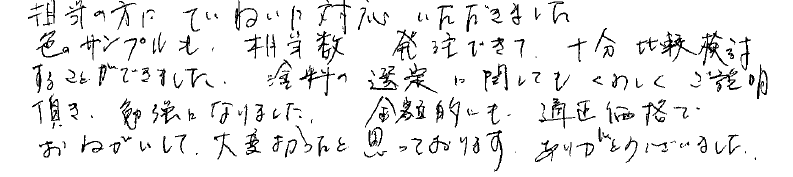 担当の方に ていねいに対応 いただきました
色のサンプルも、相当数 発注できて、十分比較検討
することができました。塗料の選定に関してもくわしくご説明
頂き、勉強になりました。金額的にも、適正価格で
おねがいして、大変よかったと思っております。ありがとうございました。